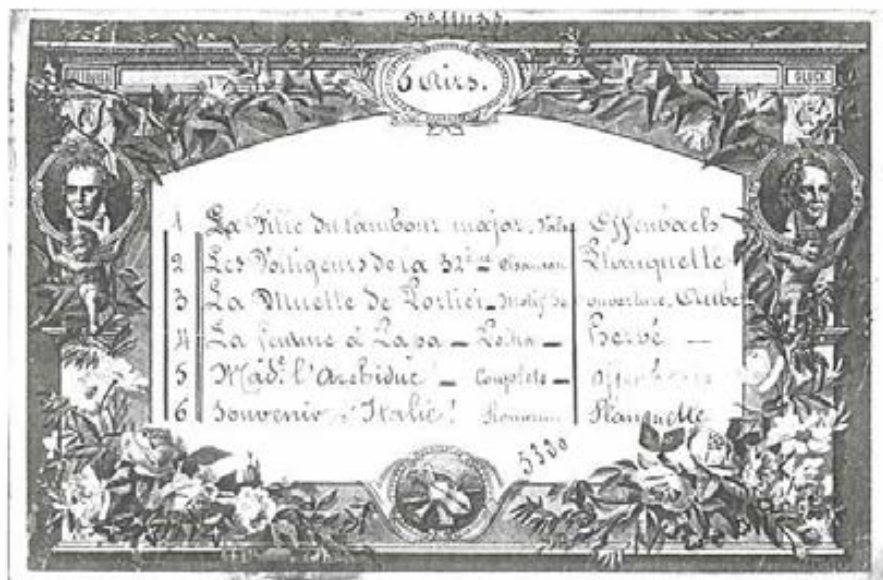 6 Airs.
GLUCK
1 La Fille du tambour major. Valse Offenbach
2 Les Voltigeurs de la 32e Chanson Planquette
3 La Muette de Portici - Motif de l'ouverture. Auber
4 La femme à Papa - Polka - Hervé -
5 Made. l'Archiduc - Couplets - Offenbach
6 Souvenir d'Italie! Romance Planquette
5330